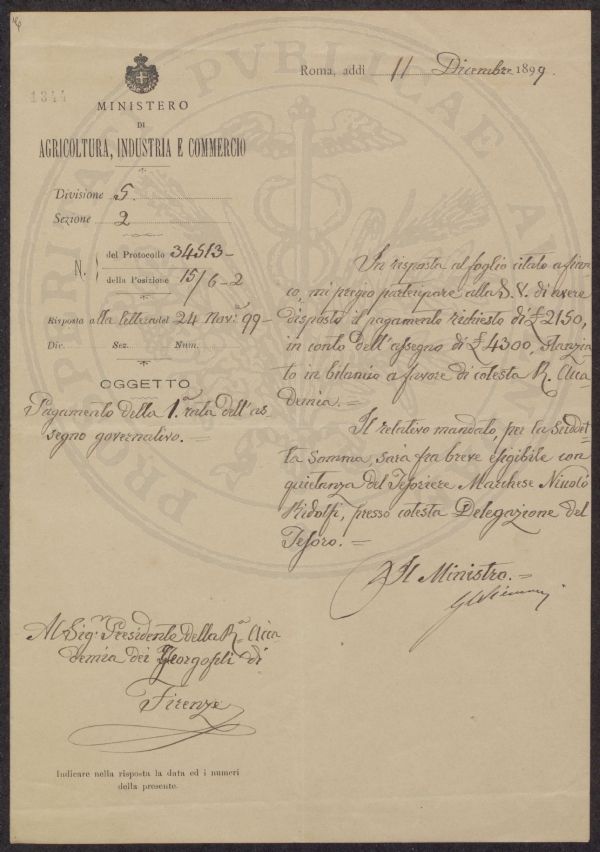 1344
MINISTERO
DI
AGRICOLTURA, INDUSTRIA E COMMERCIO
Divisione 5.
Sezione 2
N.
del Protocollo 34513-
della Posizione 15/6-2
Risposta alla lettera del 24 Nov.e 99-
Div. Sez. Num.
OGGETTO
Pagamento della 1.a rata dell'as
segno governativo.=
Roma, addì 11 Dicembre 1899.
In risposta al foglio citato a fian
co, mi pregio partecipare alla S.V. di avere
disposto il pagamento richiesto di £2150,
in conto dell'assegno di £4300, stanzia
to in bilancio a favore di codesta R. Acca
demia.=
Il relativo mandato, per la suddet=
ta somma, sarà fra breve esigibile con
quietanza del Tesoriere Marchese Niccolò
Ridolfi, presso cotesta Delegazione del
Tesoro.=
Il Ministro.=
Al Sig.r Presidente della R.a Acca
demia dei Georgofili di
Firenze
Indicare nella risposta la data ed i numeri
della presente.
PVBLICAE